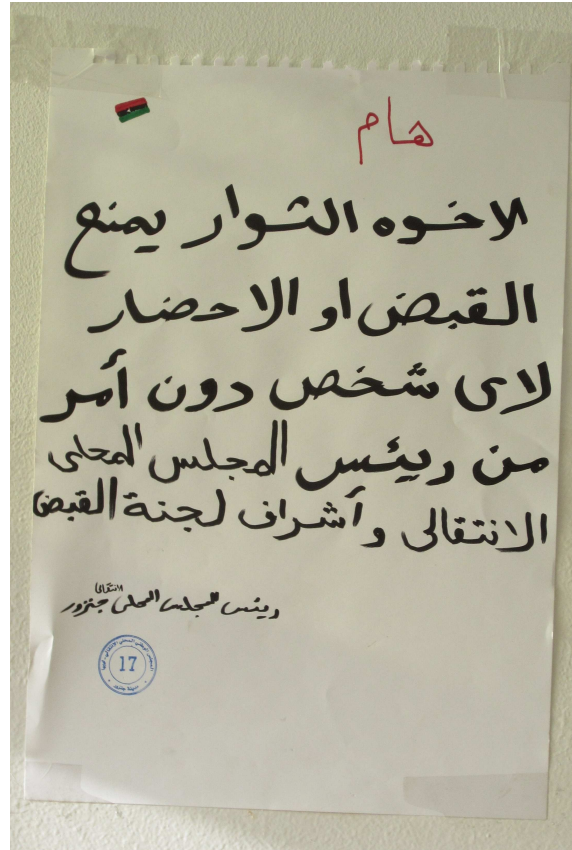 هام
الاخوه الثوار يمنع
القبض او الاحضار
لاى شخص دون أمر
من رئيس المجلس المحلى
الانتقالى وأشراف لجنة القبض
الانتقالى
رئيس المجلس المحلى جنزور
17